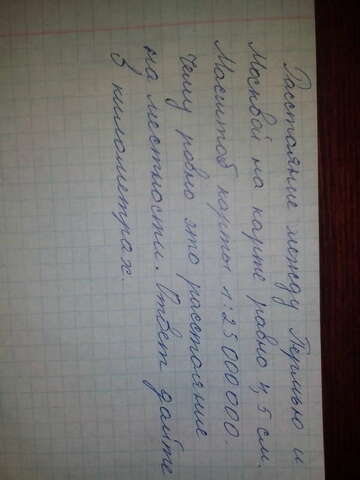 Расстояние между Пермью и
Москвой на карте равно 4,5 см.
Масштаб карты 1:25 000 000.
Чему равно это расстояние
на местности. Ответ дайте
в километрах.